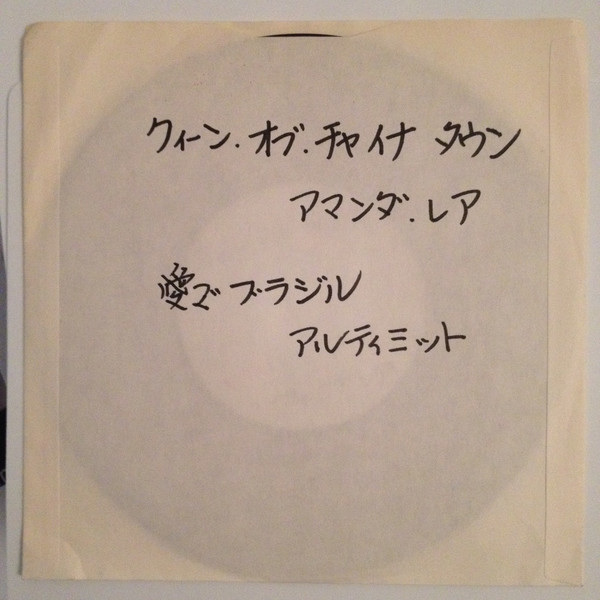 クィーン.オブ.チャイナ タウン
アマンダ.レア
愛でブラジル
アルティミット